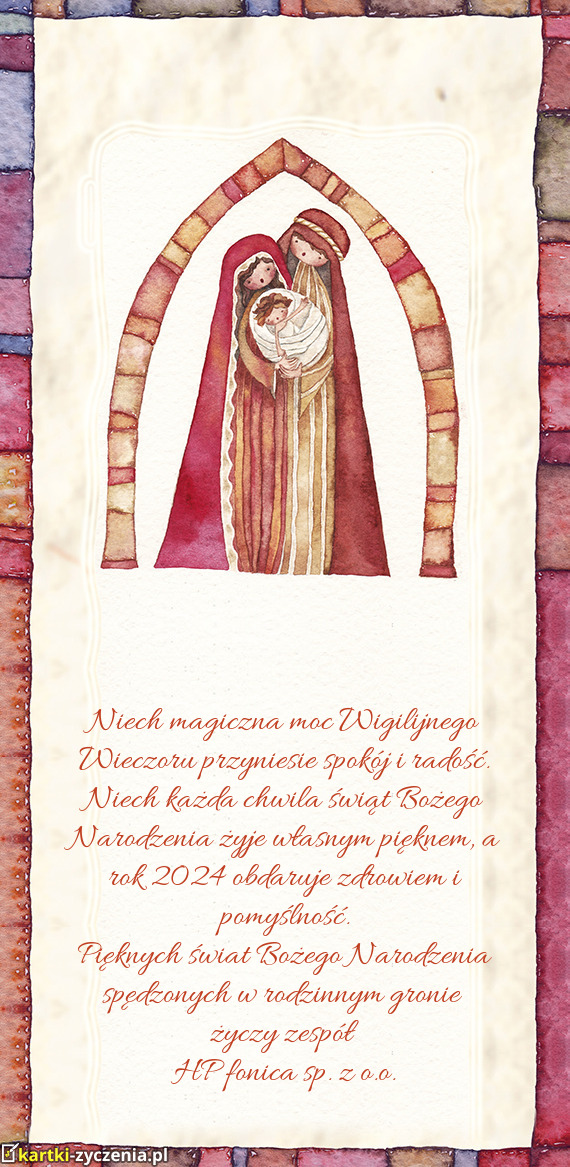 Niech magiczna moc Wigilijnego
Wieczoru przyniesie spokój i radość.
Niech każda chwila świąt Bożego
Narodzenia żyje własnym pięknem, a
rok 2024 obdaruje zdrowiem i
pomyślność.
Pięknych świat Bożego Narodzenia
spędzonych w rodzinnym gronie
życzy zespół
HP fonica sp. z o.o.
kartki-zyczenia.pl